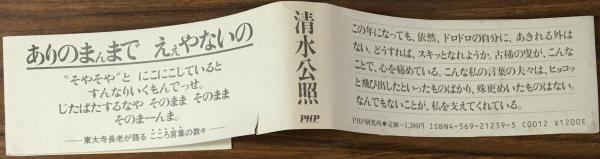 ありのまんまで ええやないの
“そやそや”と にこにこしていると
すんなりいくもんでっせ。
じたばたするなや そのまま そのまま
そのまーんま。
──東大寺長老が語る こころ言葉の数々──
清水公照
PHP
この年になっても、依然、ドロドロの自分に、あきれる外は
ない。どうすれば、スキッとなれようか。古稀の叟が、こんな
ことで、心を痛めている。こんな私の言葉の夫々は、ヒョコッ
と飛び出したといったものばかり、殊更めいたものはない。
なんでもないことが、私を支えてくれている。
PHP研究所●定価=1,200円 ISBN4-569-21239-5 C0012 ¥1200E